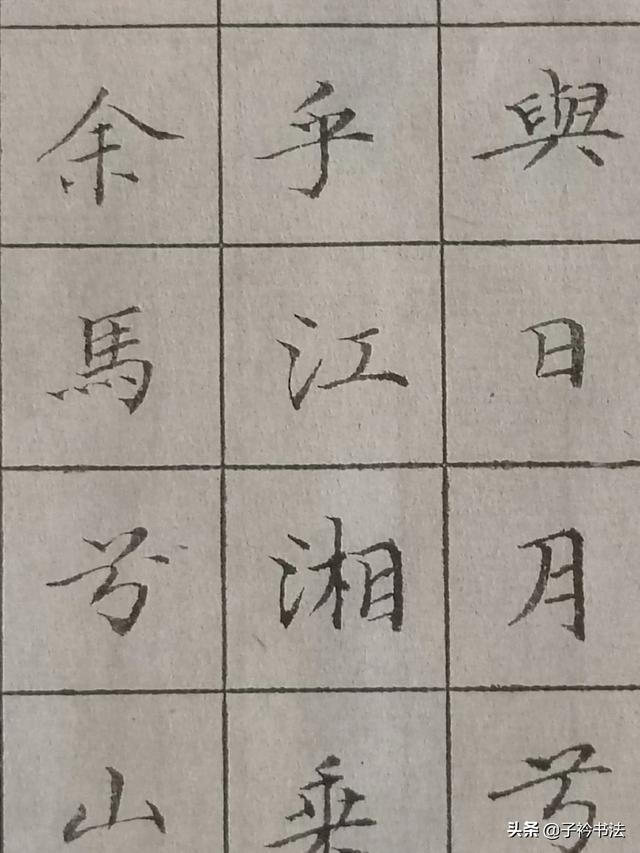 與日月兮
乎江湘乗
余馬兮山
头条 @子衿书法